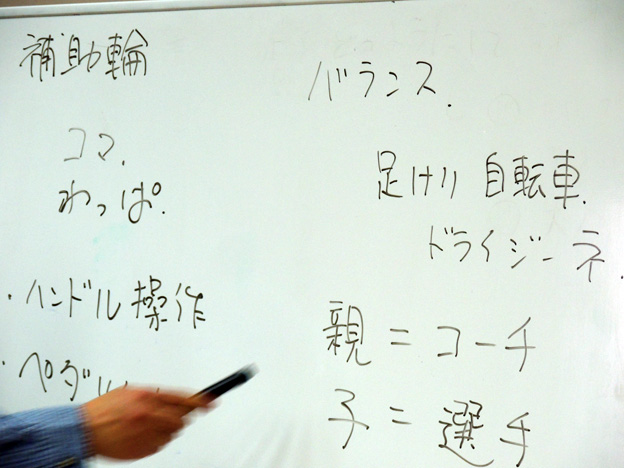 補助輪
コマ.
わっぱ.
・ハンドル操作
・ペダル
バランス.
足けり 自転車.
ドライジーネ.
親=コーチ
子=選手